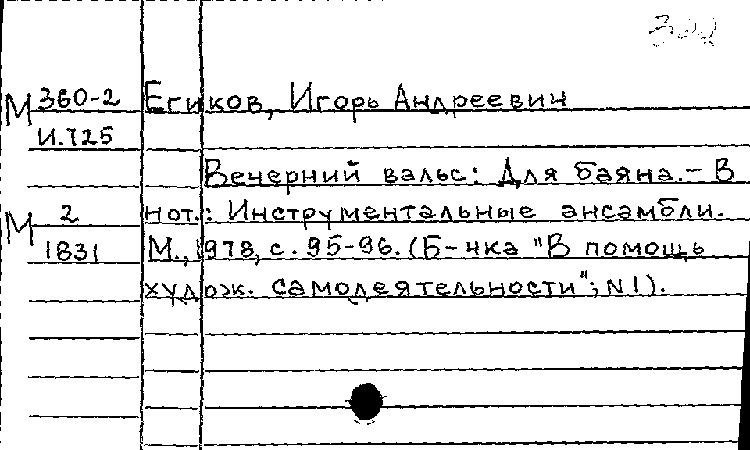 М 360-2 Егиков, Игорь Андреевич
И.725
Вечерний вальс: Для баяна.- В
М 2 нот.: Инструментальные ансамбли.
1831 М., 1978, с. 95-96. (Б-чка "В помощь
худож. самодеятельности"; N1).